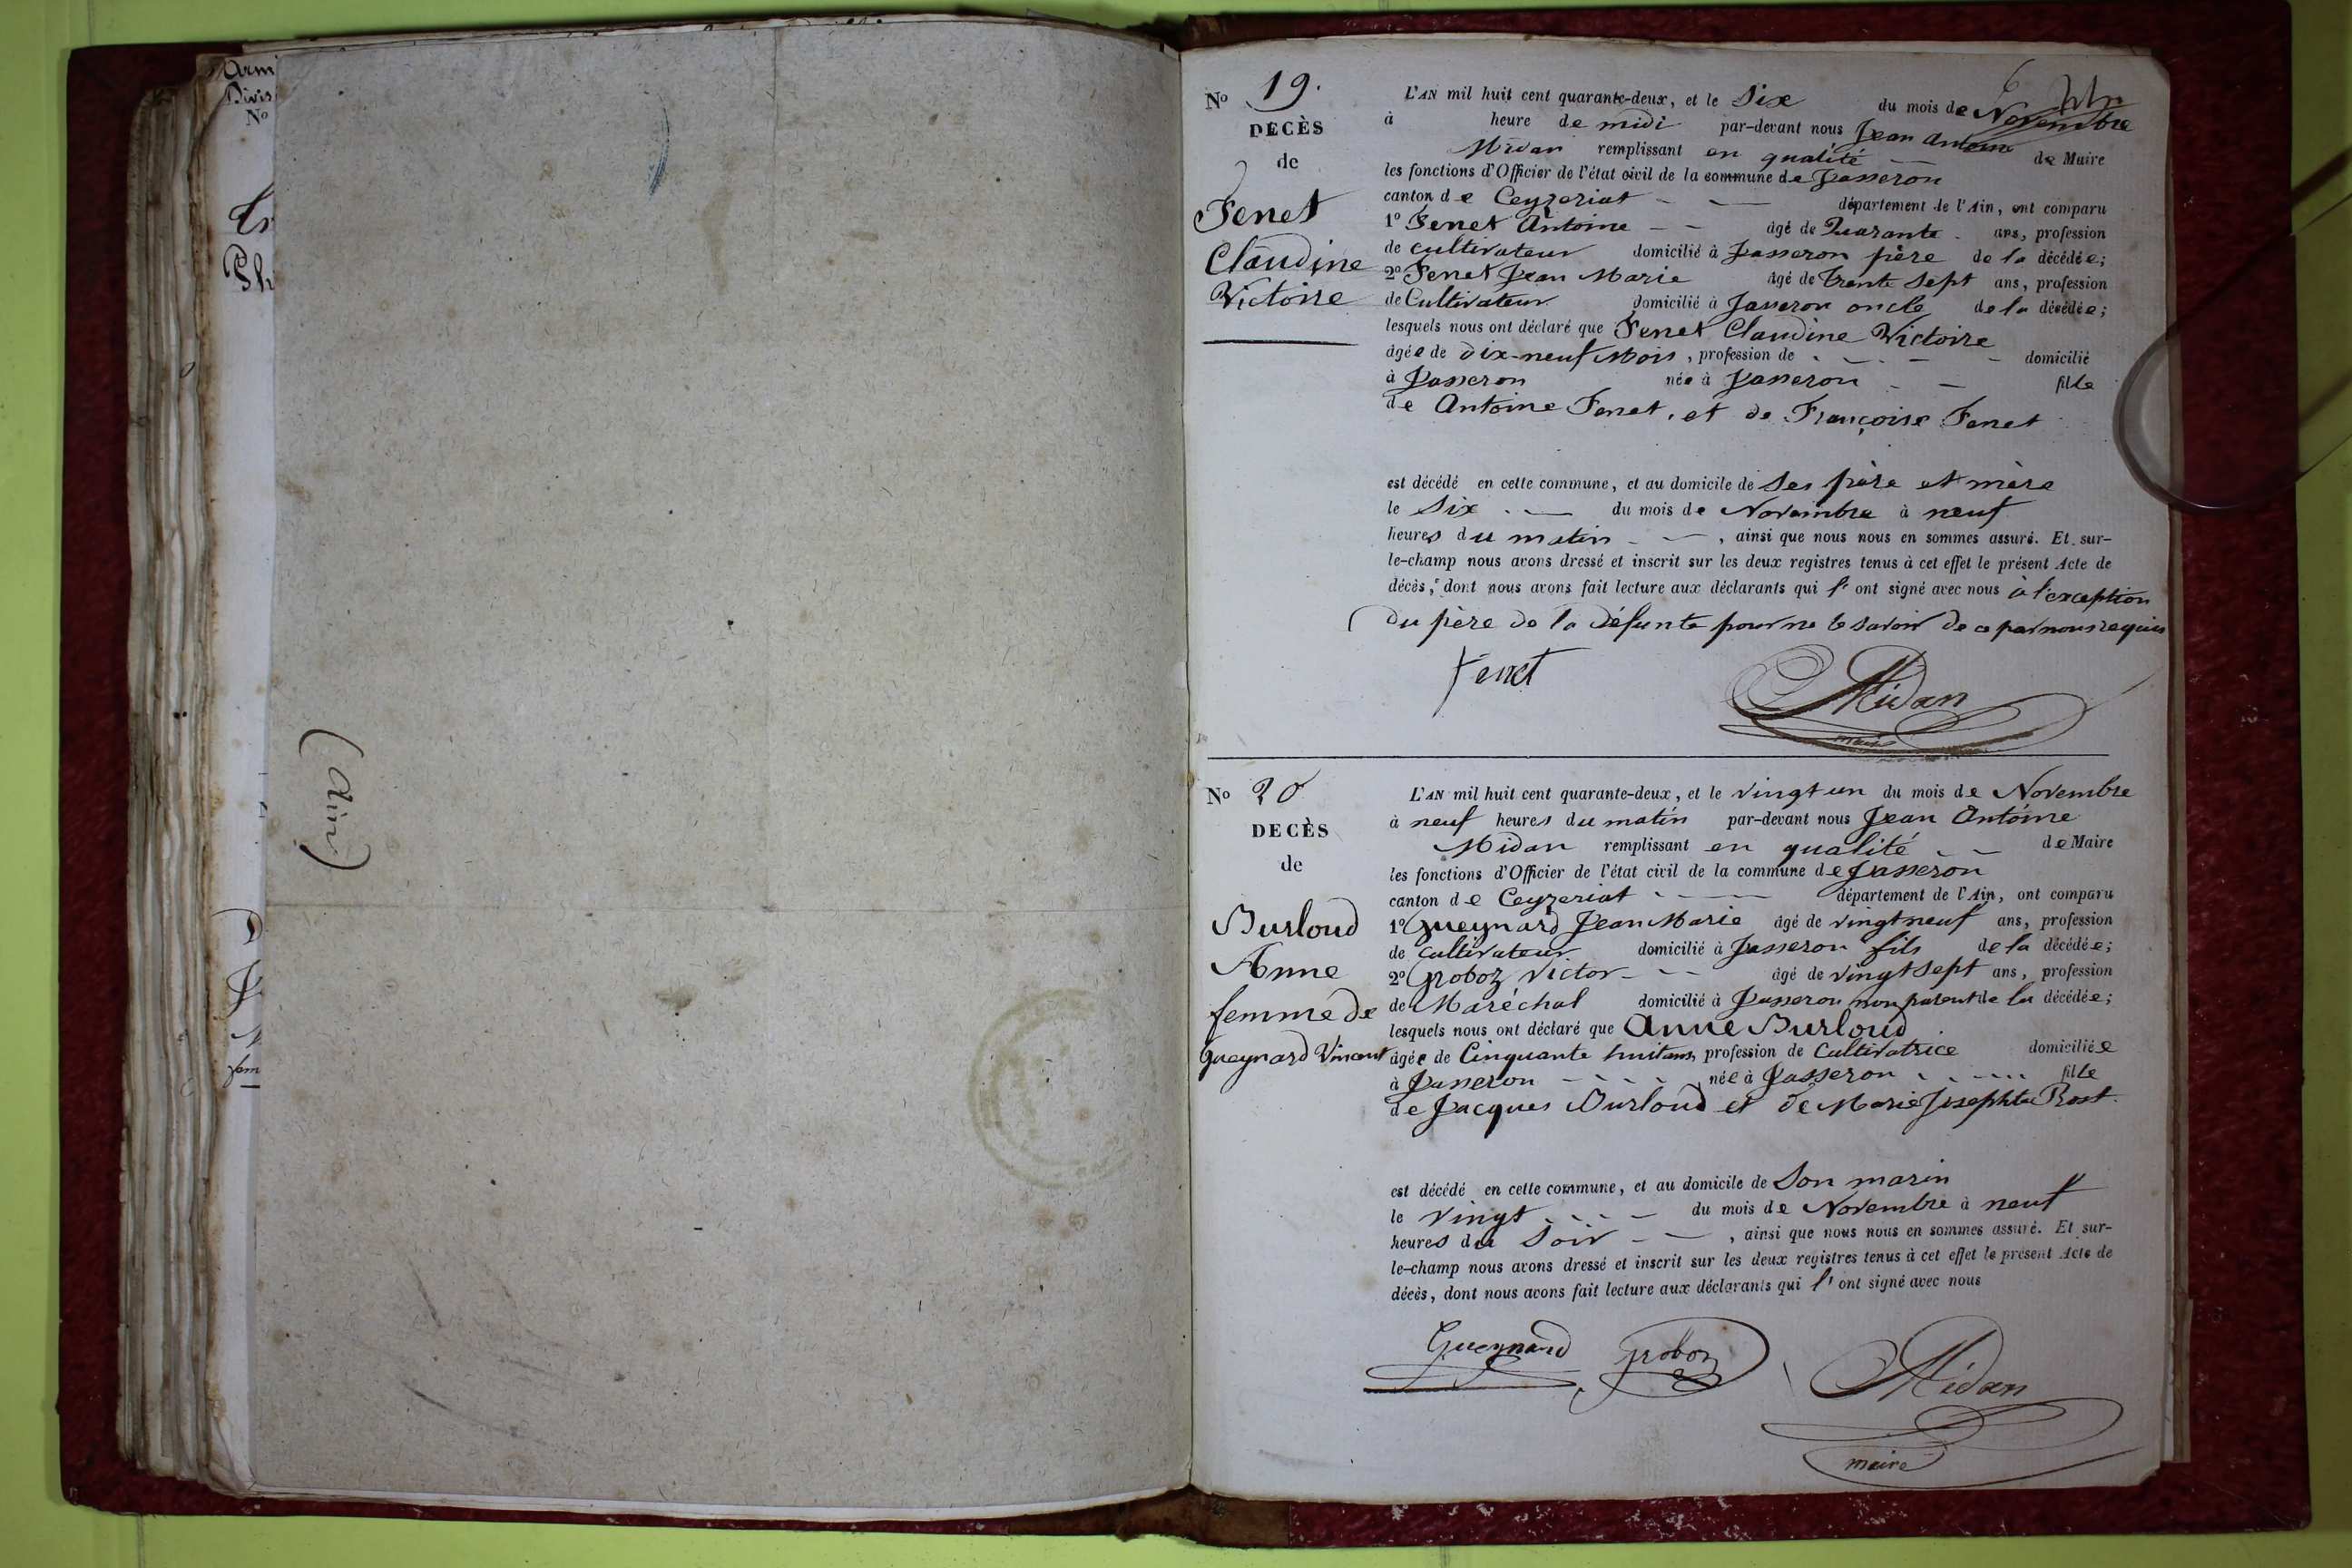 Arm
Divis
Nº
(Ain)
6
Nº 19.
DECÈS
de
Fenet
Claudine
Victoire
L'AN mil huit cent quarante-deux, et le Six du mois de Novembre
à heure de midi par-devant nous Jean Antoine
Midan remplissant en qualité de Maire
les fonctions d'Officier de l'état civil de la commune de Jasseron
canton de Ceyzeriat département de l'Ain, ont comparu
1º Fenet Antoine âgé de Quarante ans, profession
de cultivateur domicilié à Jasseron père de la décédée;
2º Fenet Jean Marie âgé de trente Sept ans, profession
de Cultivateur domicilié à Jasseron oncle de la décédée;
lesquels nous ont déclaré que Fenet Claudine Victoire
âgée de dix-neuf Mois, profession de domicilié
à Jasseron née à Jasseron fille
de Antoine Fenet, et de Françoise Fenet
est décédé en cette commune, et au domicile de Ses père et mère
le Six du mois de Novembre à neuf
heures du matin, ainsi que nous nous en sommes assuré. Et sur-
le-champ nous avons dressé et inscrit sur les deux registres tenus à cet effet le présent Acte de
décès, dont nous avons fait lecture aux déclarants qui l'ont signé avec nous à l'exception
du père de la défunte pour ne le savoir de ce par nous requis
fenet Midan
maire
Nº 20
DECÈS
de
Burloud
Anne
femme de
Gueynard Vincent
L'AN mil huit cent quarante-deux, et le vingt un du mois de Novembre
à neuf heures du matin par-devant nous Jean Antoine
Midan remplissant en qualité de Maire
les fonctions d'Officier de l'état civil de la commune de Jasseron
canton de Ceyzeriat département de l'Ain, ont comparu
1º Gueynard Jean Marie âgé de vingt neuf ans, profession
de cultivateur domicilié à Jasseron fils de la décédée;
2º Groboz Victor âgé de vingt Sept ans, profession
de Maréchal domicilié à Jasseron non parent de la décédée;
lesquels nous ont déclaré que Anne Burloud
âgée de Cinquante huit ans, profession de Cultivatrice domiciliée
à Jasseron née à Jasseron fille
de Jacques Burloud et de Marie Josephte Rost
est décédé en cette commune, et au domicile de Son marin
le vingt du mois de Novembre à neuf
heures du Soir, ainsi que nous nous en sommes assuré. Et sur-
le-champ nous avons dressé et inscrit sur les deux registres tenus à cet effet le présent Acte de
décès, dont nous avons fait lecture aux déclarants qui l'ont signé avec nous
Gueynard Groboz Midan
maire